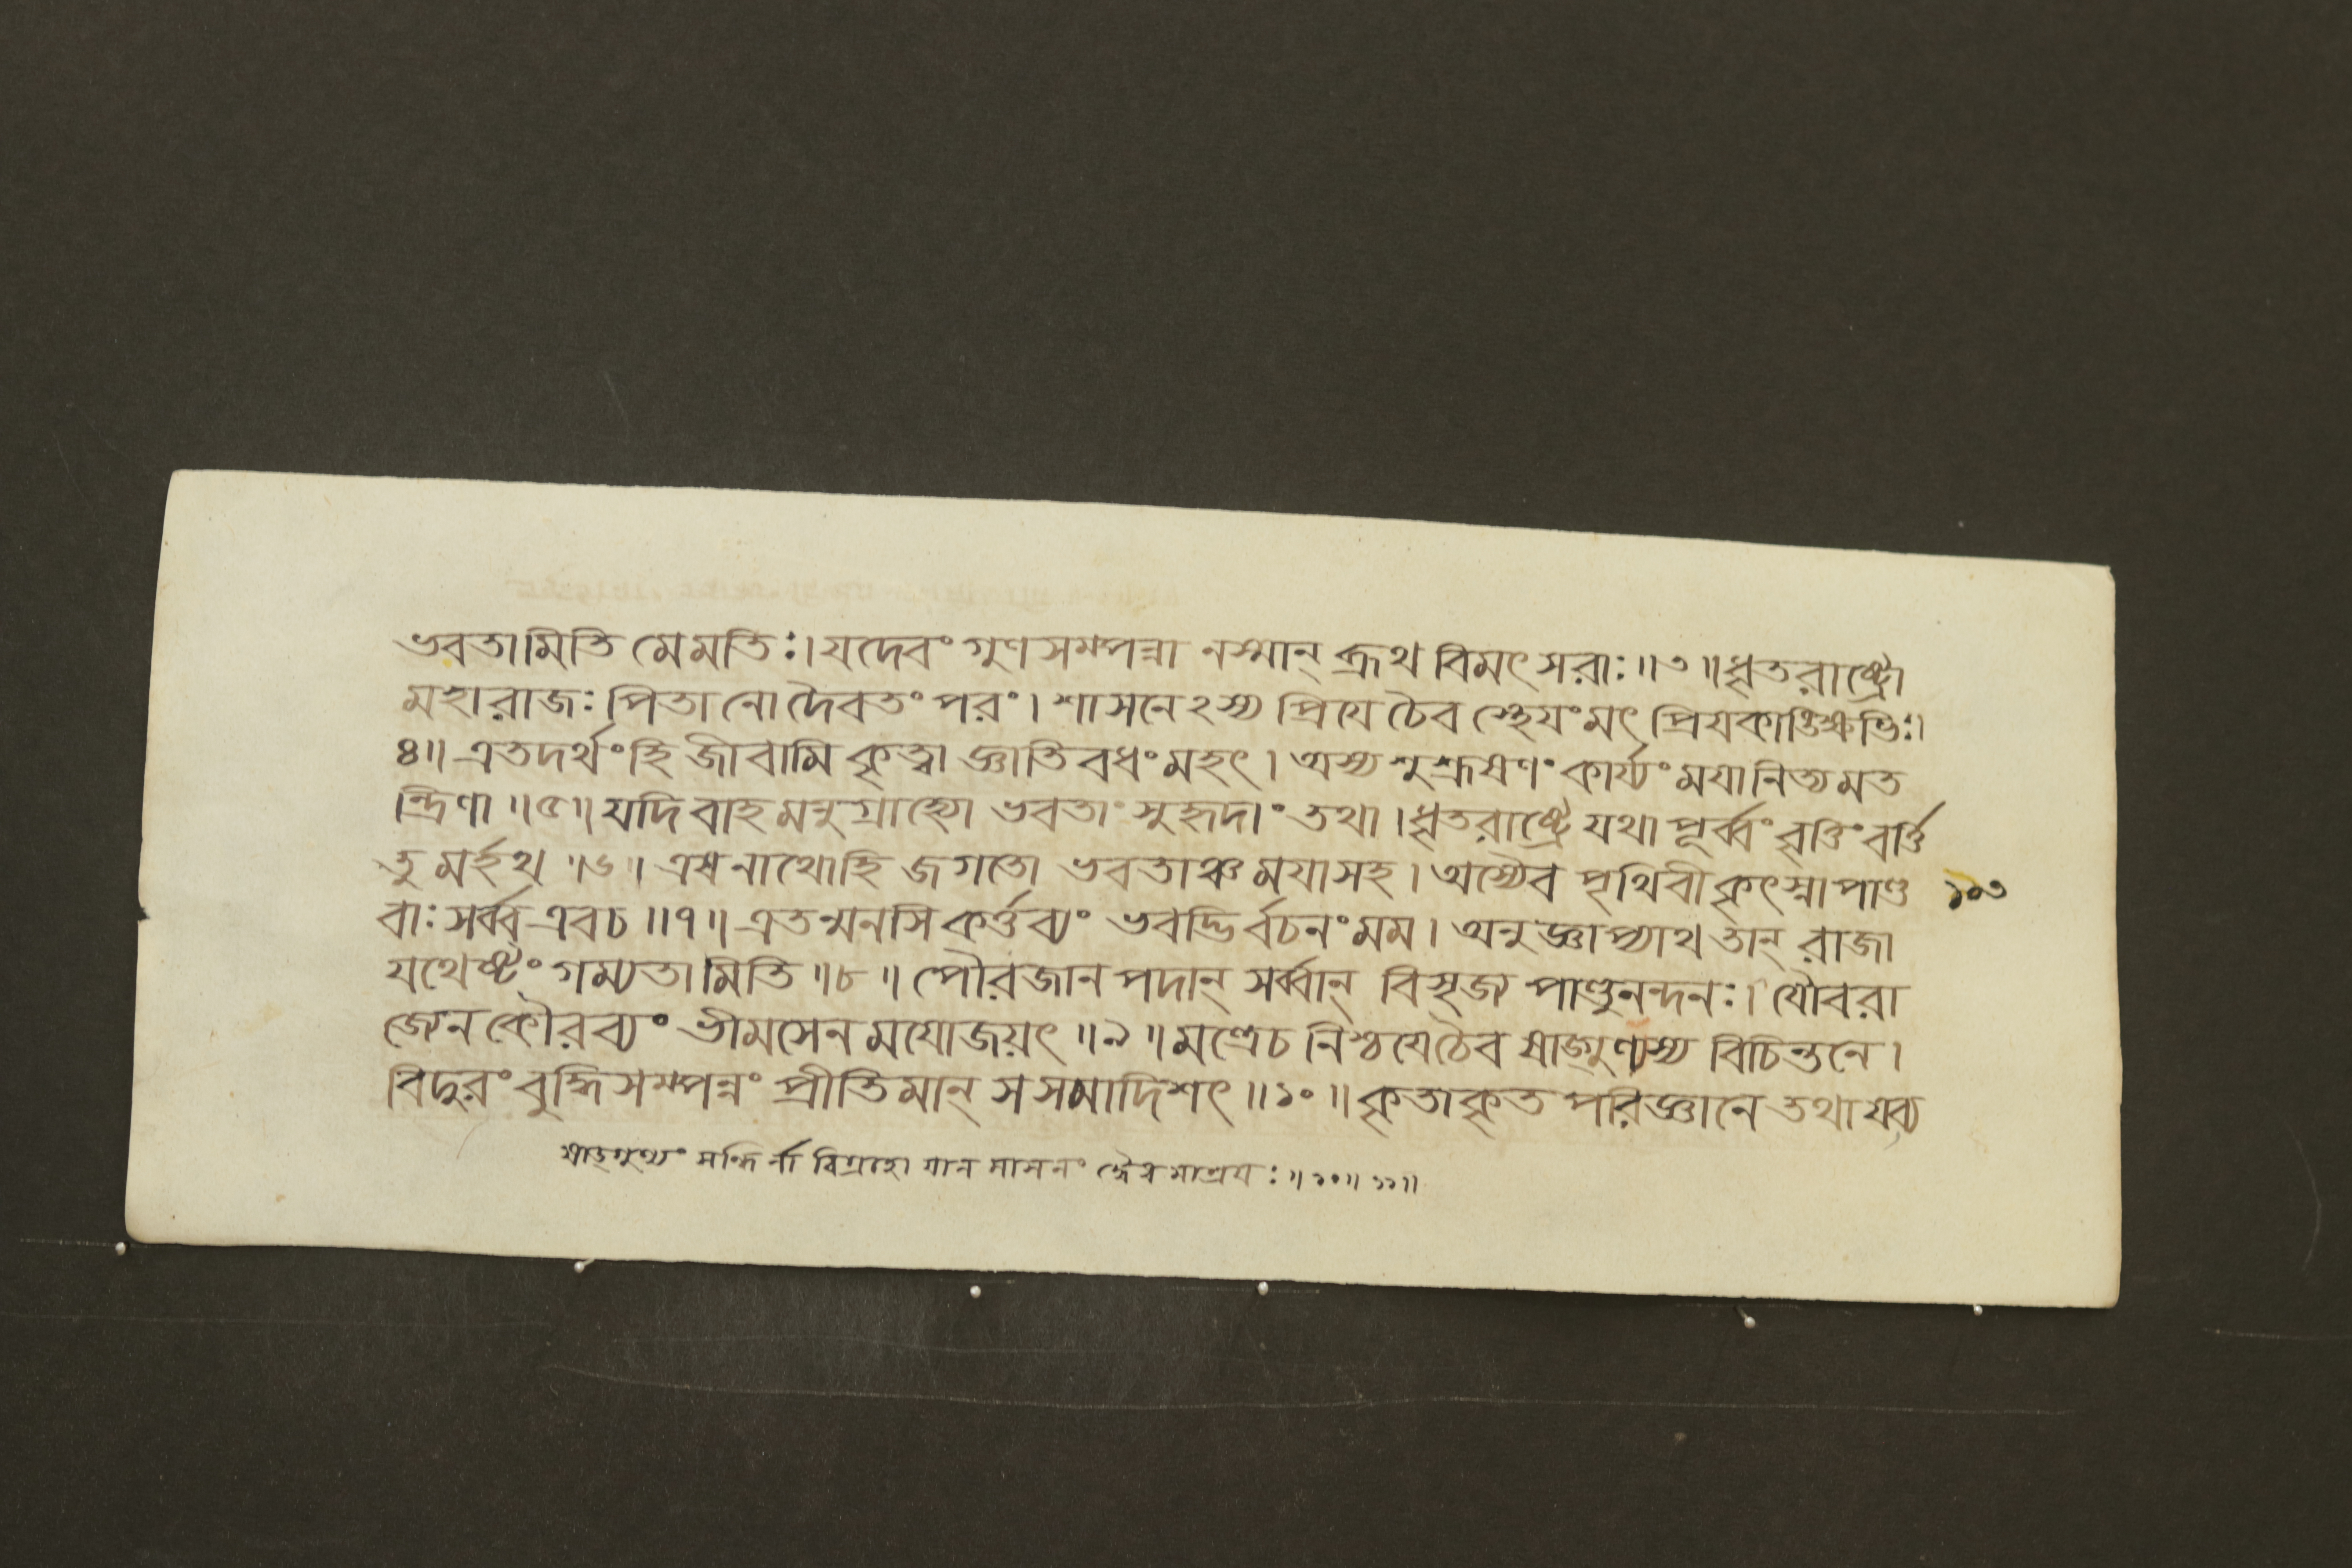 ভবতামিতি মে মতিঃ। যদেবং গুণসম্পন্না নস্মান্ ব্রূথ বিমৎসরাঃ॥৩॥ধৃতরাষ্ট্রো
মহারাজঃ পিতা নো দৈবতং পরং। শাসনেঽস্য প্রিযে চৈব স্থেযং মৎ প্রিযকাঙ্ক্ষিভিঃ।
৪॥ এতদর্থং হি জীবামি কৃত্বা জ্ঞাতিবধং মহৎ। অস্য শুশ্রূষণং কার্য্যং মযা নিত্যমত
ন্দ্রিণা॥৫॥ যদি বাহমনুগ্রাহ্যো ভবতাং সুহৃদাং তথা। ধৃতরাষ্ট্রে যথা পূর্ব্বং বৃত্তিং বর্ত্তি
তুমর্হথ॥৬। এষ নাথো হি জগতো ভবতাঞ্চ মযা সহ। অস্যৈব পৃথিবী কৃৎস্না পাণ্ড ১০৩
বাঃ সর্ব্ব এব চ॥৭॥ এতন্মনসি কর্ত্তব্যং ভবদ্ভির্বচনং মম। অনুজ্ঞাপ্যাথ তান্ রাজা
যথেষ্টং গম্যতামিতি॥৮॥ পৌরজানপদান্ সর্ব্বান্ বিসৃজ পাণ্ডুনন্দনঃ। যৌবরা
জ্যেন কৌরব্যং ভীমসেনমযোজয়ৎ॥৯॥ মন্ত্রে চ নিশ্চযে চৈব ষাড্গুণ্যস্য বিচিন্তনে।
বিদুরং বুদ্ধিসম্পন্নং প্রীতিমান্ স সমাদিশৎ॥১০॥ কৃতাকৃতপরিজ্ঞানে তথাযব্য
ষাড্গুণ্যং সন্ধির্না বিগ্রহো যানমাসনং দ্বৈধমাশ্রযঃ॥১০॥১১॥